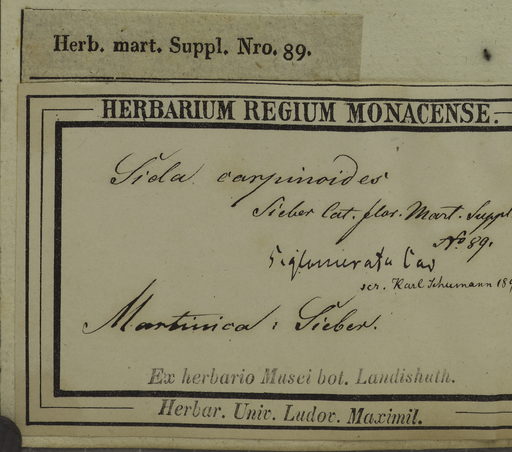 Herb. mart. Suppl. Nro. 89.
HERBARIUM REGIUM MONACENSE.
Sida carpinoides
Sieber Cat. flor. Mart. Suppl
No 89.
S. glomerata Cav
scr. Karl Schumann 189
Martinica: Sieber.
Ex herbario Musei bot. Landishuth.
Herbar. Univ. Ludov. Maximil.